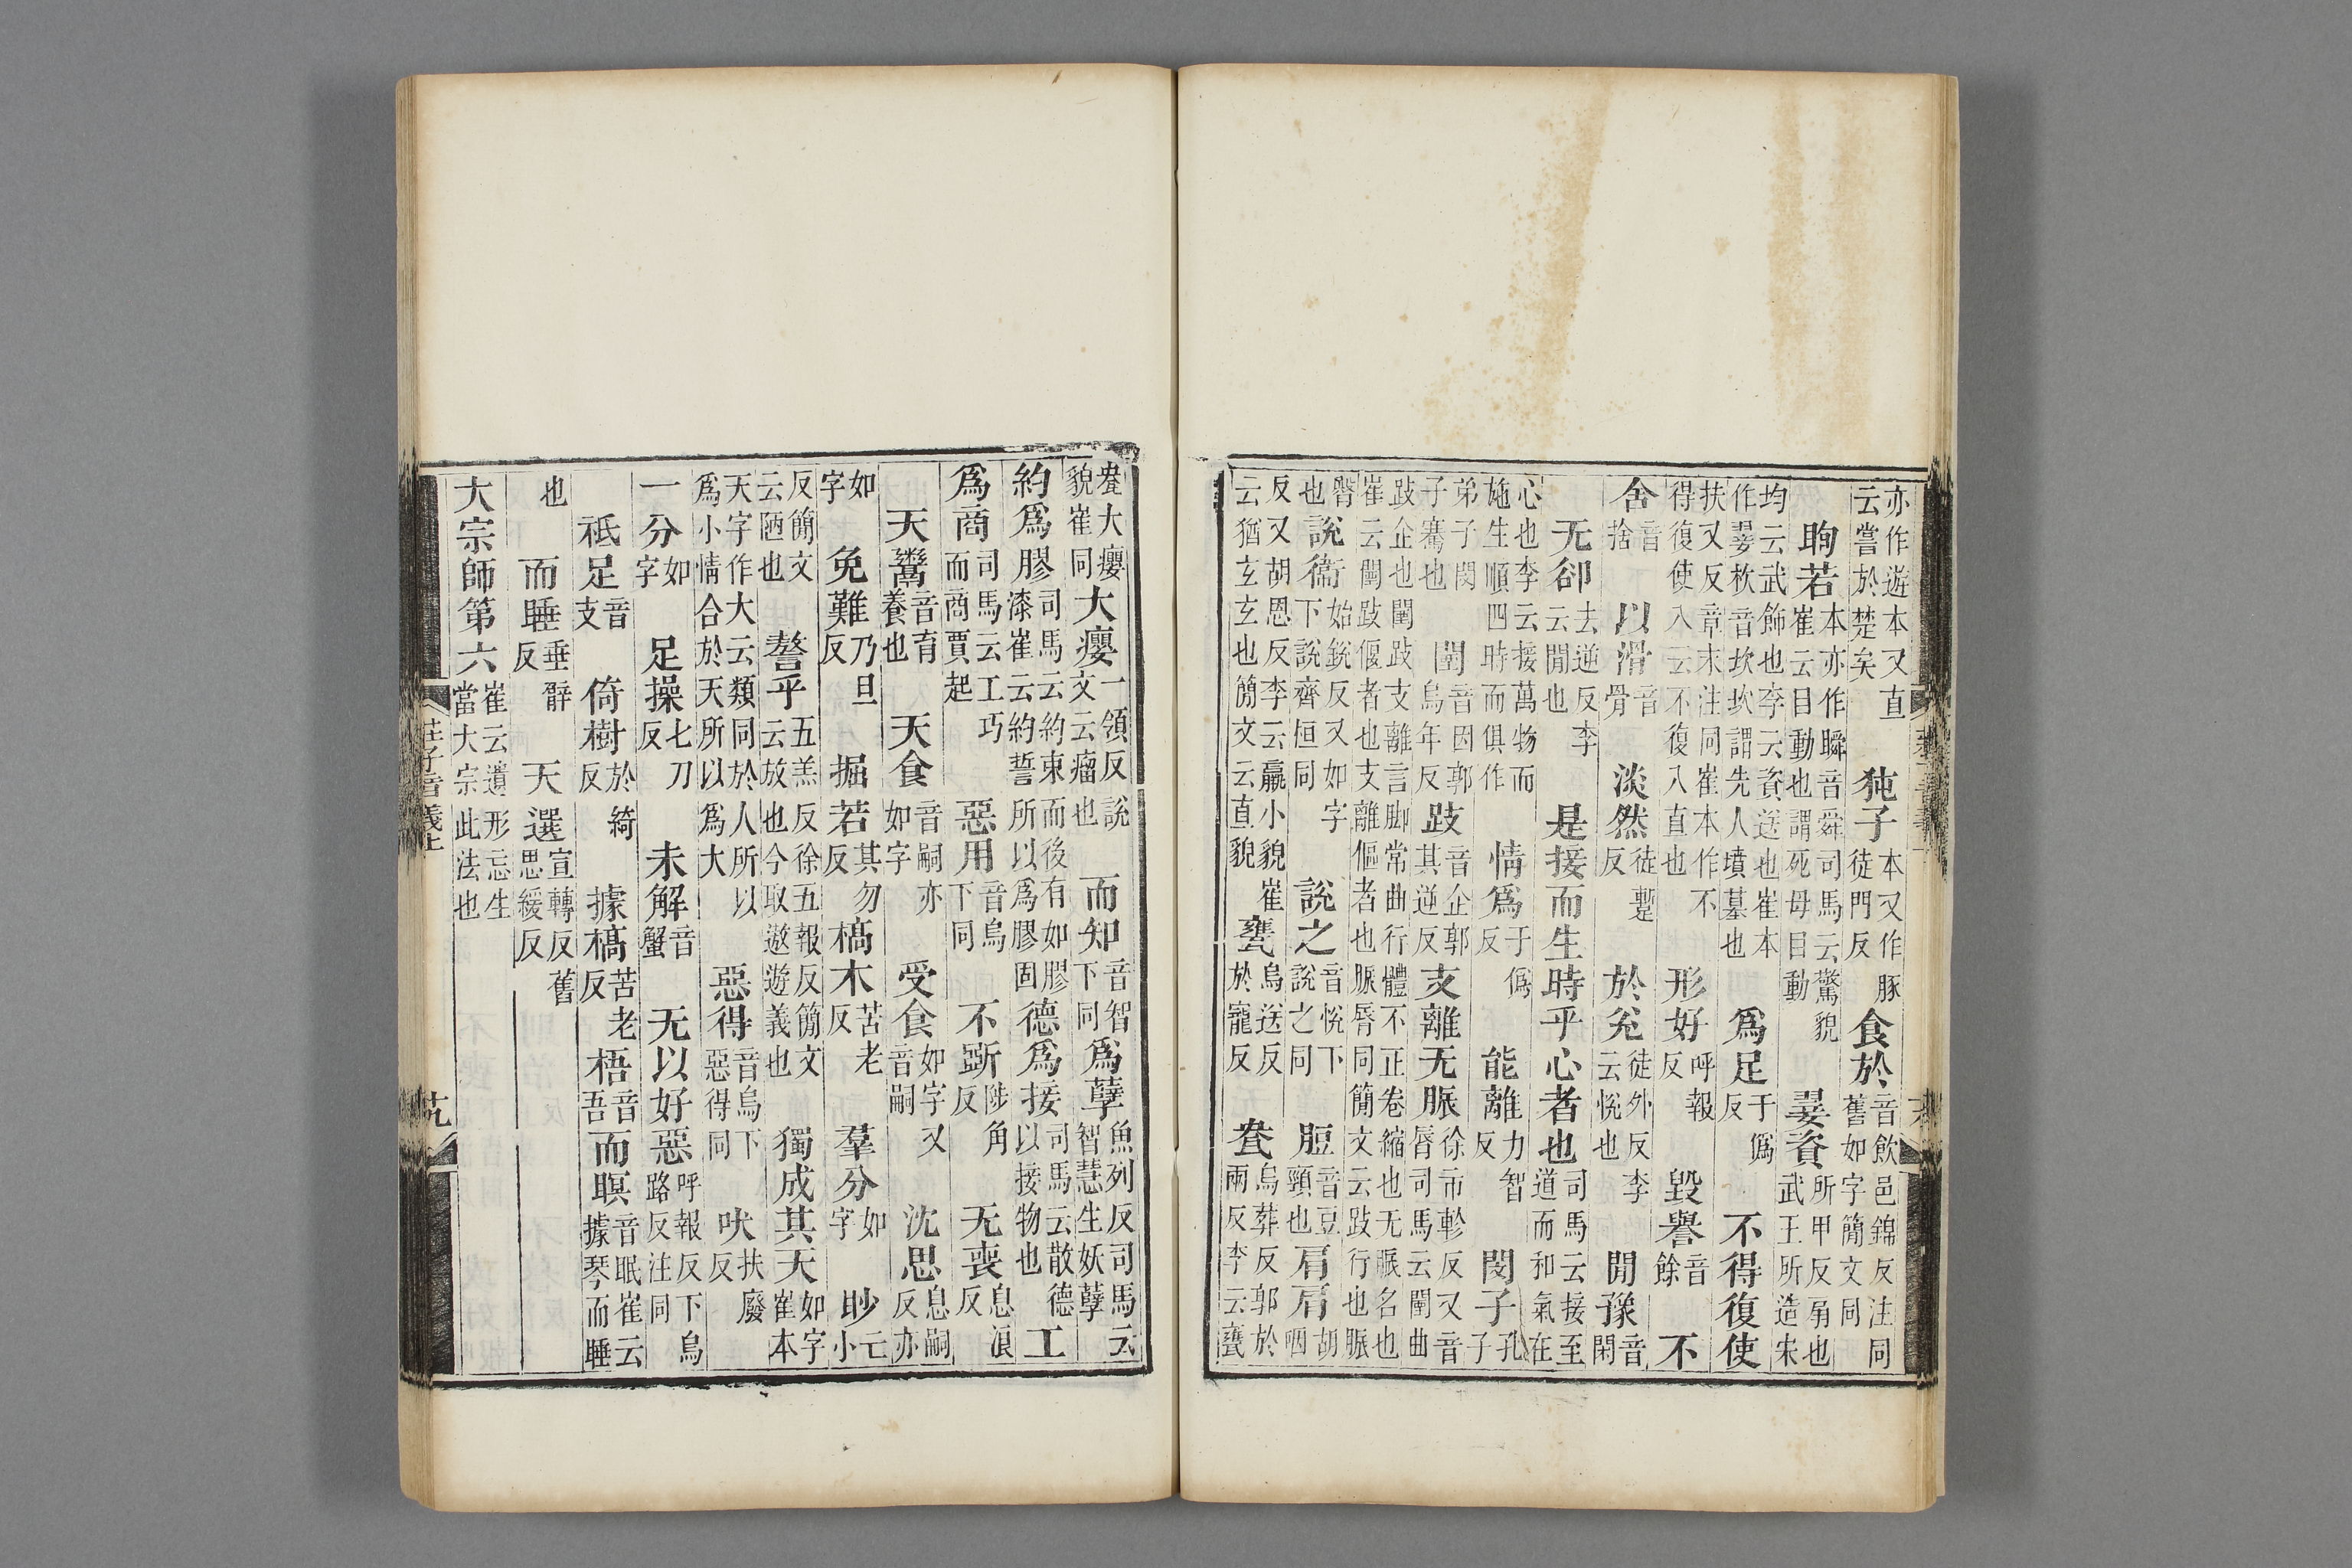 亦作遊本又直云嘗於楚矣 㹠子本又作豚徒門反 食於音飲邑錦反注同舊如字簡文同
眴若本亦作瞬音舜司馬云驚貌崔云目動也謂死母目動 翣資所甲反扇也武王所造宋
均云武飾也李云資送也崔本作翣枚音坎坎謂先人墳墓也 爲足于僞反 不得復使
扶又反章末注同崔本作不得復使入云不復入直也 形好呼報反 毀譽音餘 不
舍音捨 以滑音骨 淡然徒蹔反 於兌徒外反李云悅也 閒豫音閑
无郤去逆反李云閒也 是接而生時乎心者也司馬云接至道而和氣在
心也李云接萬物而施生順四時而俱作 情爲于僞反 能離力智反 閔子孔子
弟子閔子騫也 闉音因郭烏年反 跂音企郭其逆反 支離无脤徐市軫反又音脣司馬云闉曲
跂企也闉跂支離言脚常曲行體不正卷縮也无脤名也崔云闉跂偃者也支離傴者也脤脣同簡文云跂行也脤
臀也 說衞始銳反又如字下說齊桓同 說之音悅下說之同 脰音豆頸也 肩肩胡咽
反又胡恩反李云羸小貌崔云猶玄玄也簡文云直貌 甕烏送反於寵反 㼜烏葬反郭於兩反李云甕
㼜大癭貌崔同 大癭一領反說文云瘤也 而知音智下同 爲孽魚列反司馬云智慧生妖孽
約爲膠司馬云約束而後有如膠漆崔云約誓所以爲膠固 德爲接司馬云散德以接物也 工
爲商司馬云工巧而商賈起 惡用音烏下同 不斲陟角反 无喪息浪反
天鬻音育養也 天食音嗣亦如字 受食如字又音嗣 沈思息嗣反亦
如字 免難乃旦反 掘若其勿反 槁木苦老反 羣分如字 眇亡小
反簡文云陋也 謷乎五羔反徐五報反簡文云放也今取遨遊義也 獨成其天如字崔本
天字作大云類同於人所以爲小情合於天所以爲大 惡得音烏下惡得同 吠扶廢反
一分如字 足操七刀反 未解音蟹 无以好惡呼報反下烏路反注同
祗足音支 倚樹於綺反 據槁苦老反 梧音吾 而瞑音眠崔云據琴而睡
也 而睡垂辭反 天選宣轉反舊思緩反
大宗師第六崔云遺形忘生當大宗此法也
莊子音義上